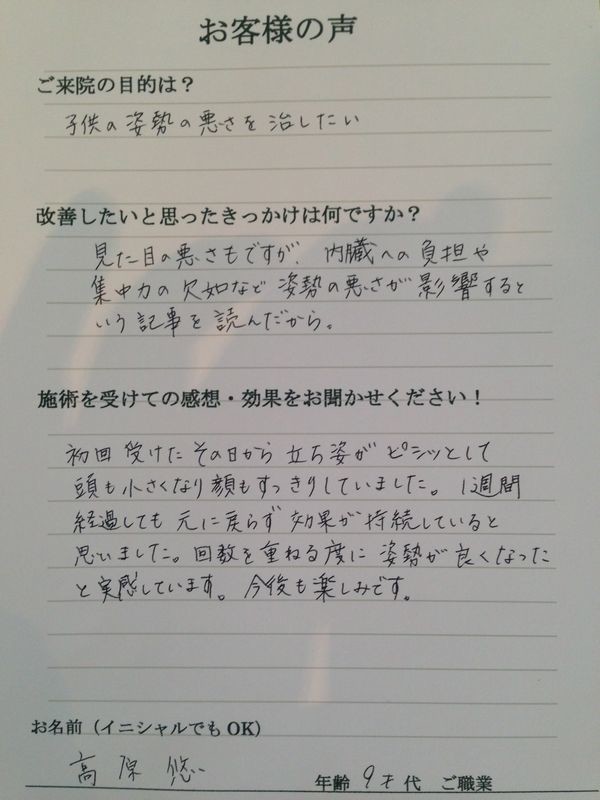 お客様の声
ご来院の目的は？
子供の姿勢の悪さを治したい
改善したいと思ったきっかけは何ですか？
見た目の悪さもですが、内臓への負担や
集中力の欠如など姿勢の悪さが影響すると
いう記事を読んだから。
施術を受けての感想・効果をお聞かせください！
初回受けたその日から立ち姿がピシッとして
頭も小さくなり顔もすっきりしていました。1週間
経過しても元に戻らず効果が持続していると
思いました。回数を重ねる度に姿勢が良くなった
と実感しています。今後も楽しみです。
お名前（イニシャルでもOK）
高原 悠
年齢 9才代 ご職業